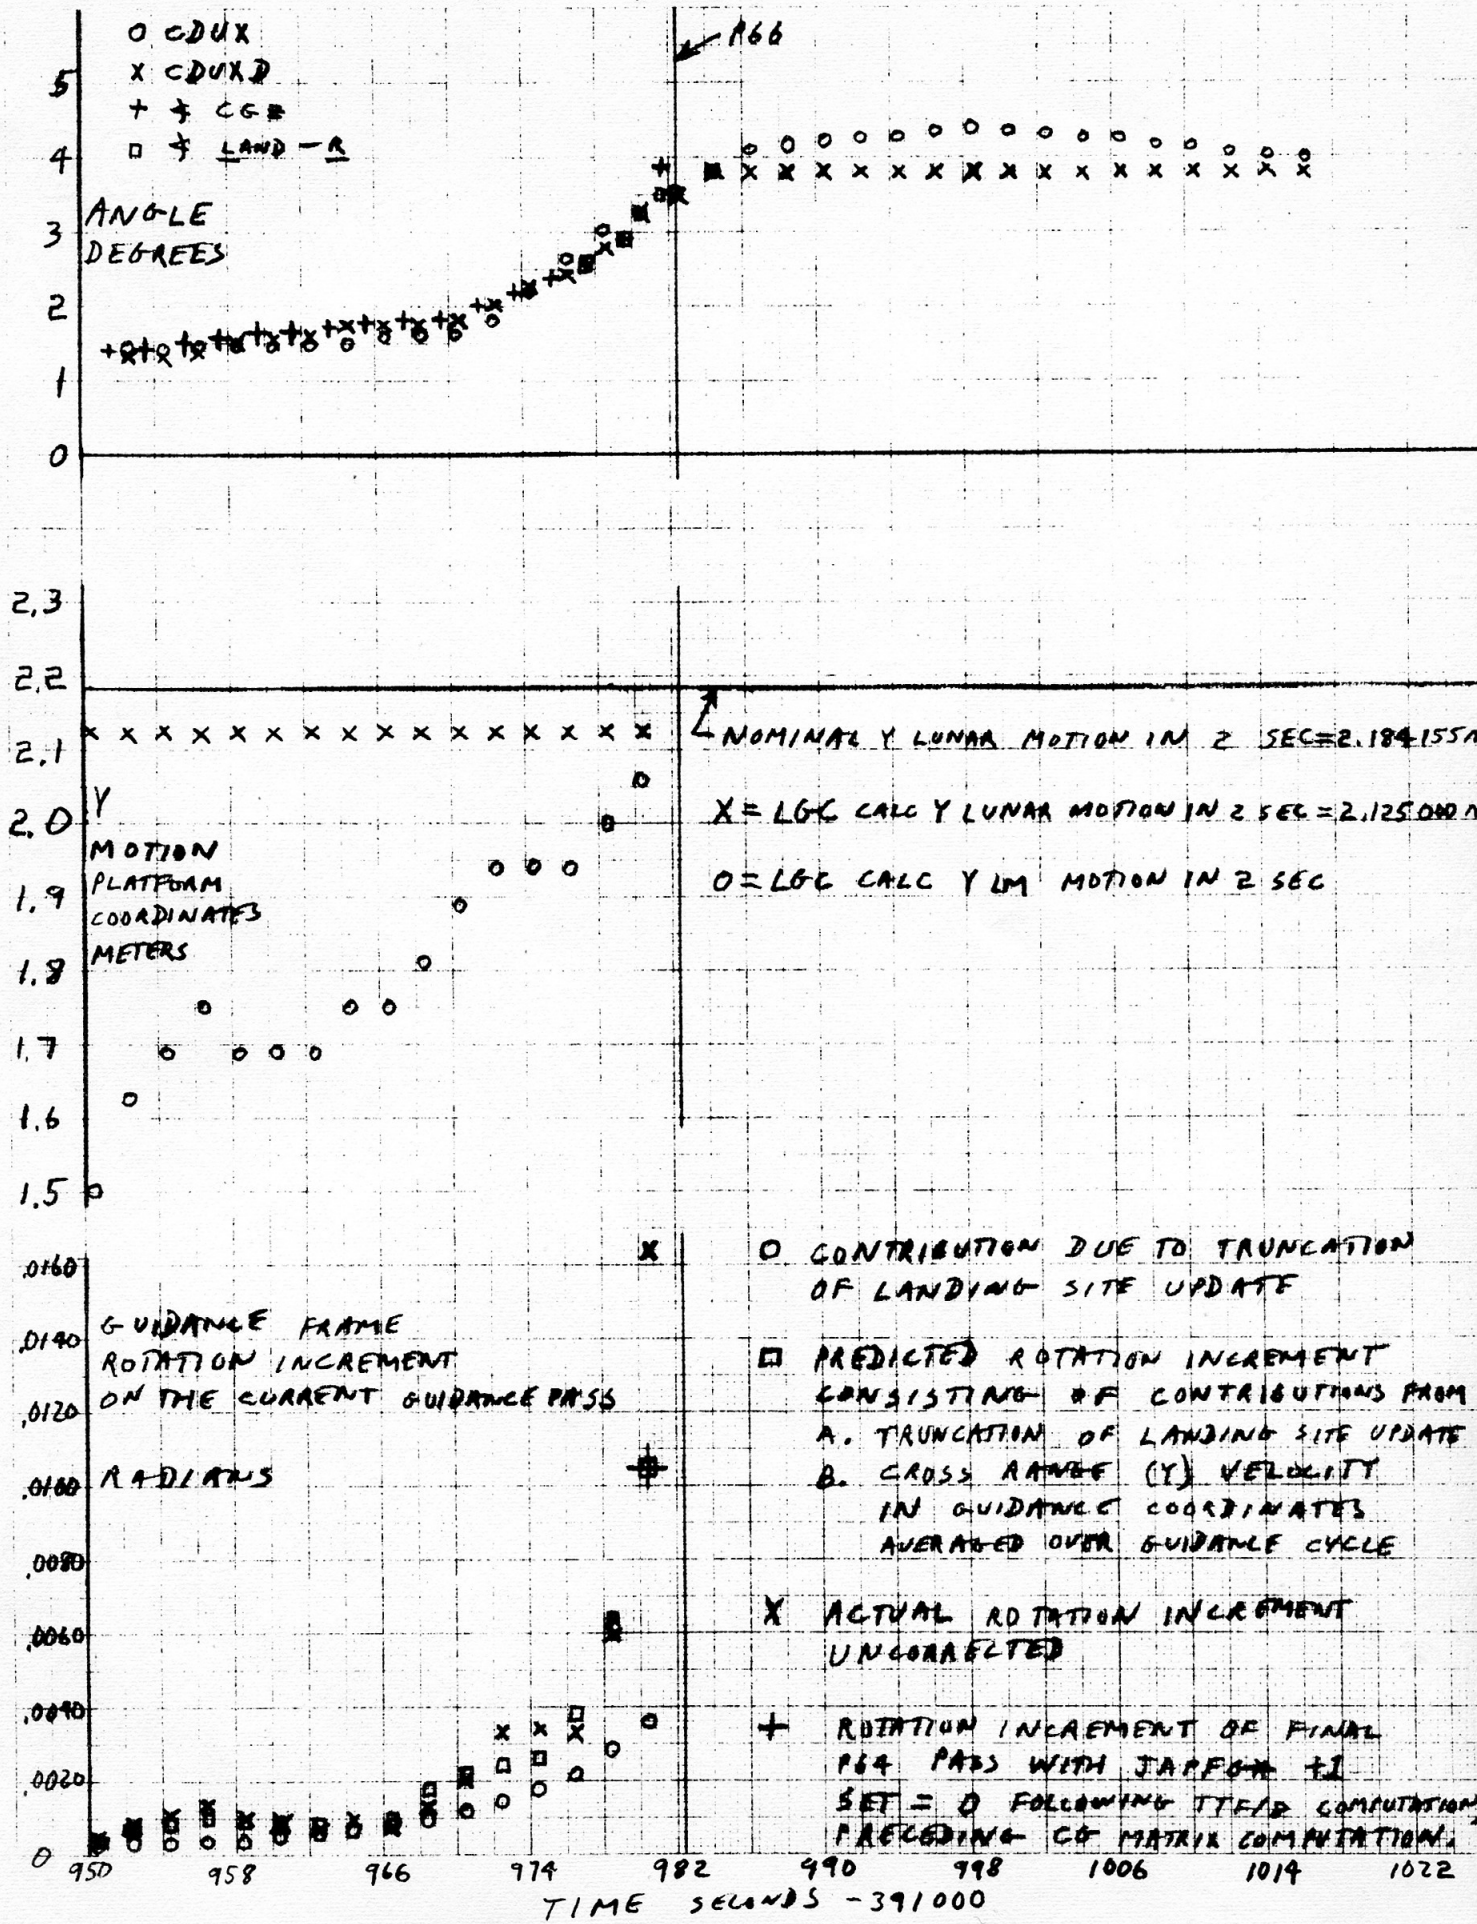 o CDUX
x CDUXD
+ ∮ CG*
□ ∮ LAND - R
P66
5
4
3
2
1
0
ANGLE
DEGREES
2.3
2.2
2.1
2.0
1.9
1.8
1.7
1.6
1.5
Y
MOTION
PLATFORM
COORDINATES
METERS
NOMINAL Y LUNAR MOTION IN 2 SEC=2.184155
X = LGC CALC Y LUNAR MOTION IN 2 SEC = 2.125000
O = LGC CALC Y LM MOTION IN 2 SEC
.0160
.0140
.0120
.0100
.0080
.0060
.0040
.0020
0
GUIDANCE FRAME
ROTATION INCREMENT
ON THE CURRENT GUIDANCE PASS
RADIANS
O CONTRIBUTION DUE TO TRUNCATION
OF LANDING SITE UPDATE
□ PREDICTED ROTATION INCREMENT
CONSISTING OF CONTRIBUTIONS FROM
A. TRUNCATION OF LANDING SITE UPDATE
B. CROSS RANGE (Y) VELOCITY
IN GUIDANCE COORDINATES
AVERAGED OVER GUIDANCE CYCLE
X ACTUAL ROTATION INCREMENT
UNCORRECTED
+ ROTATION INCREMENT OF FINAL
P64 PASS WITH +1
SET = 0 FOLLOWING TTF/8 COMPUTATION,
PRECEDING CG MATRIX COMPUTATION.
950 958 966 974 982 990 998 1006 1014 1022
TIME SECONDS -391000